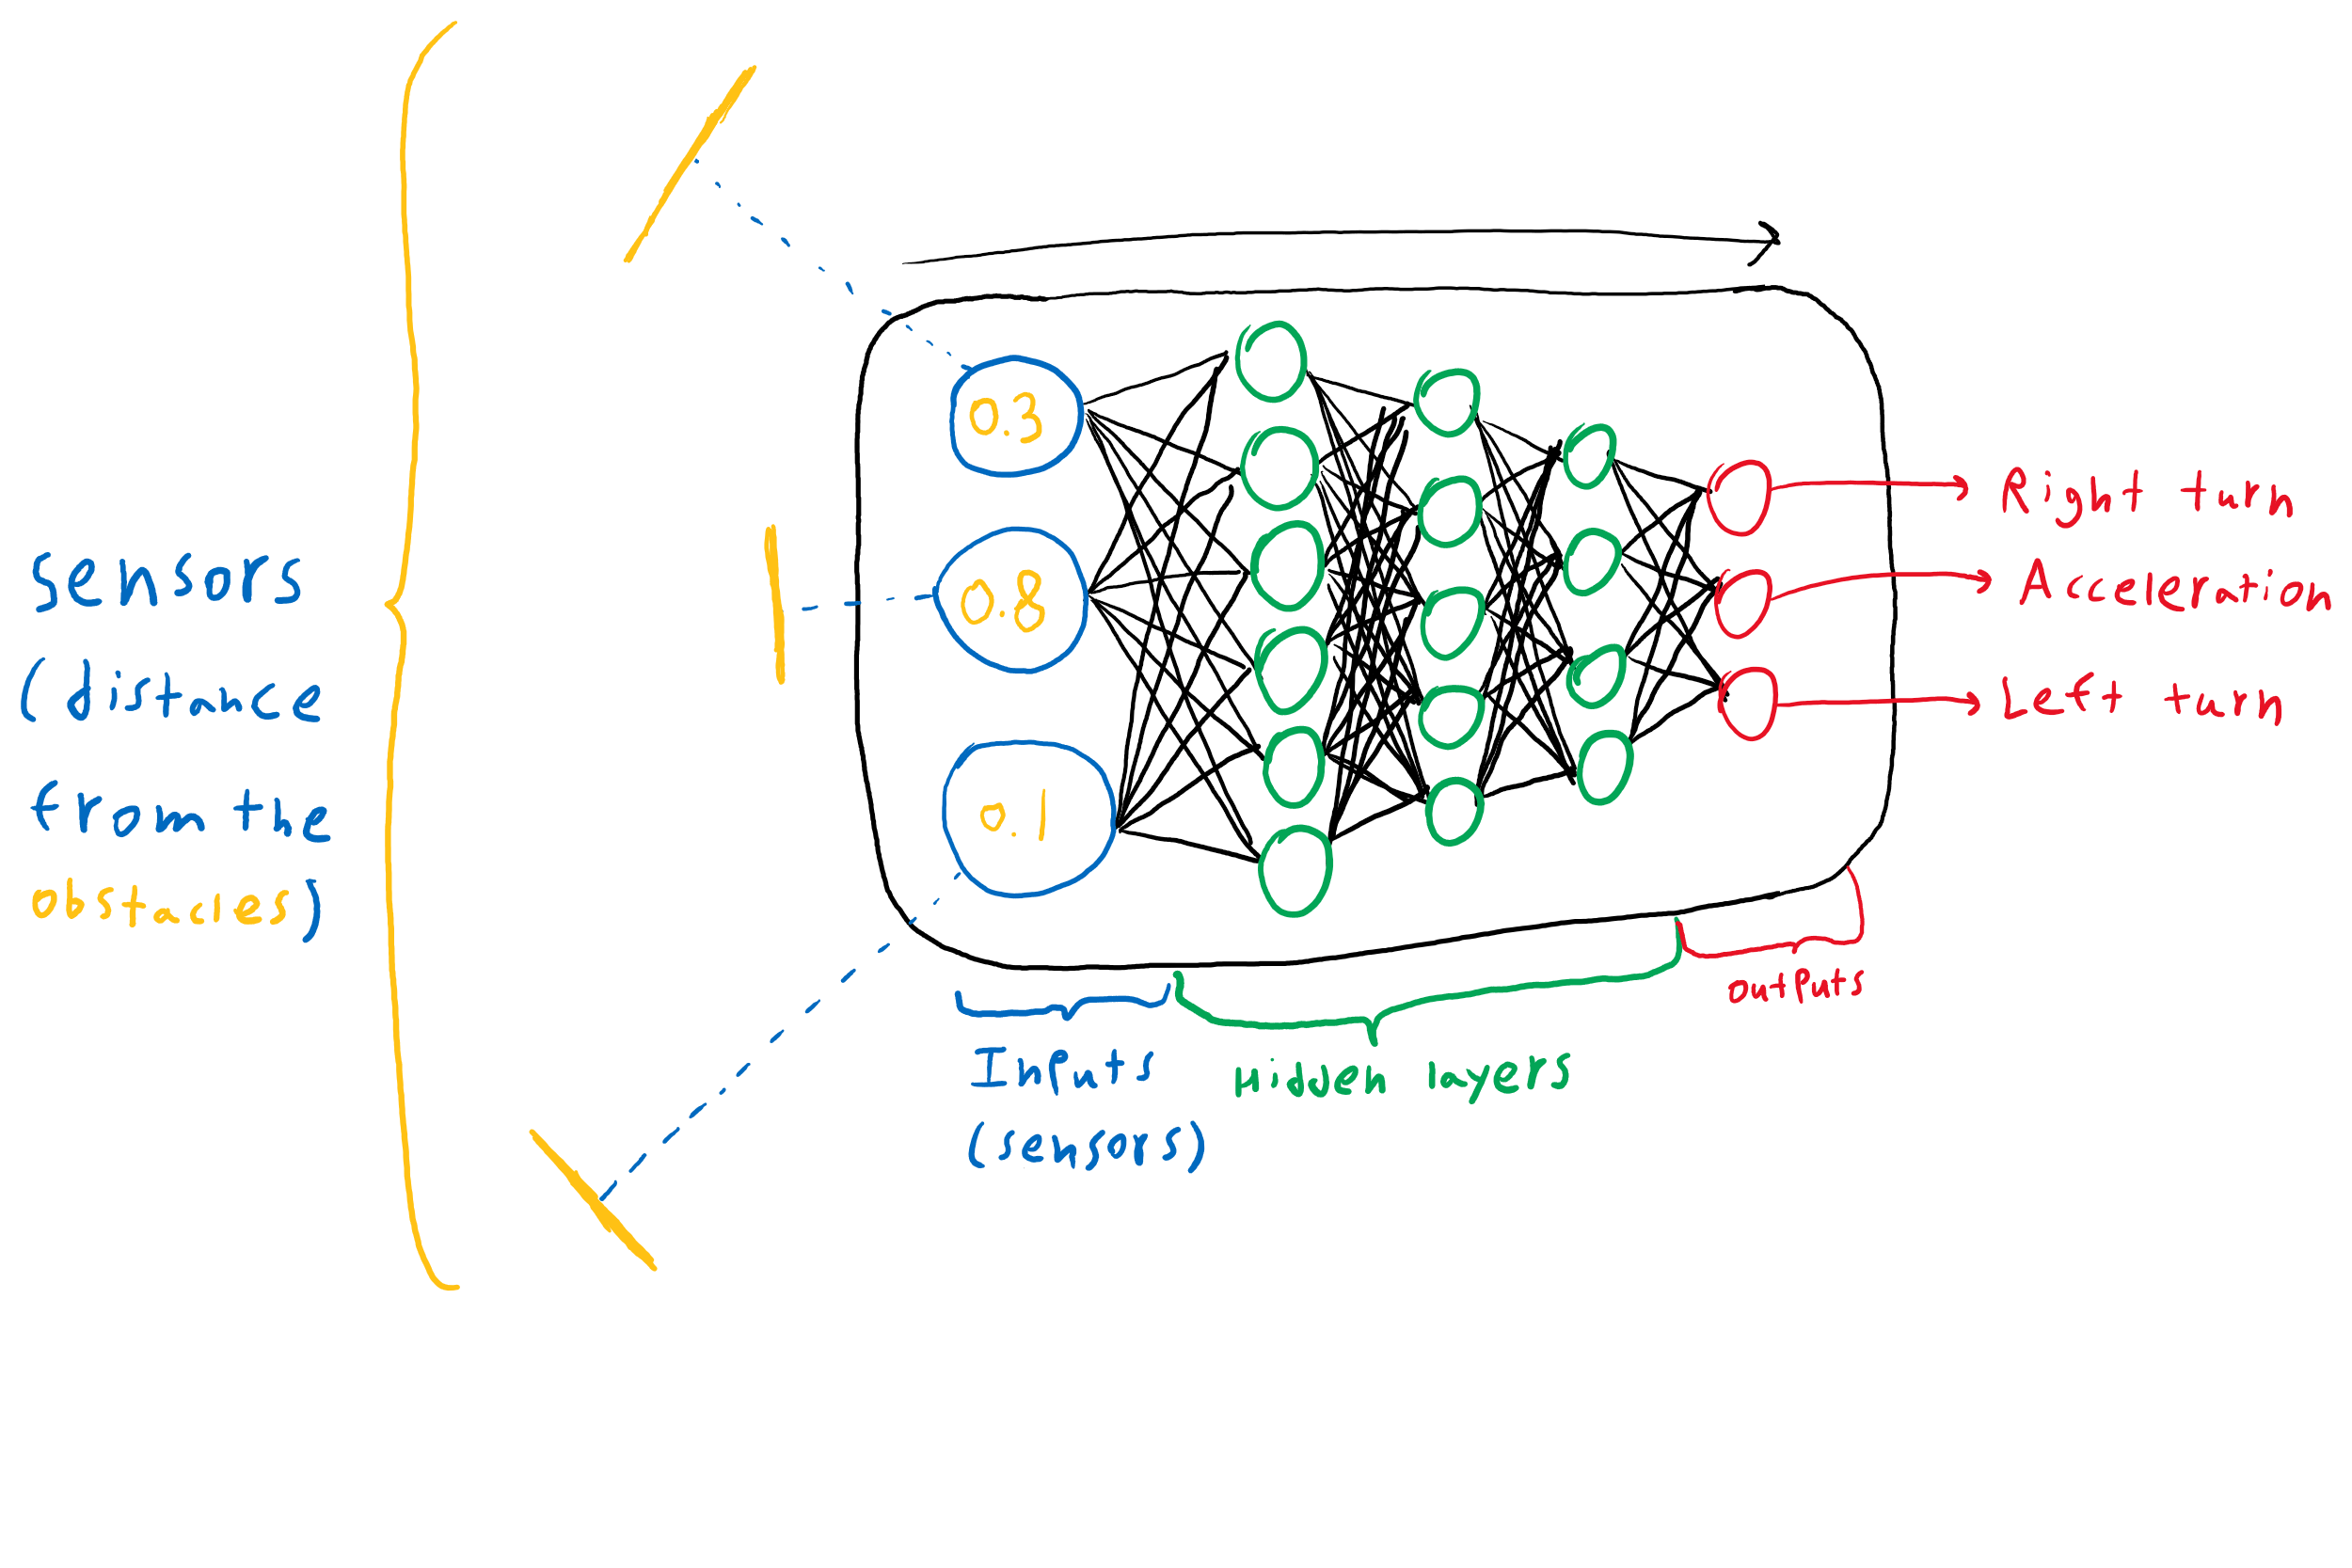 sensors
(distance
from the
obstacles)
0.3
0.8
0.1
Right turn
Acceleration
Left turn
outputs
Inputs
(sensors)
Hidden layers